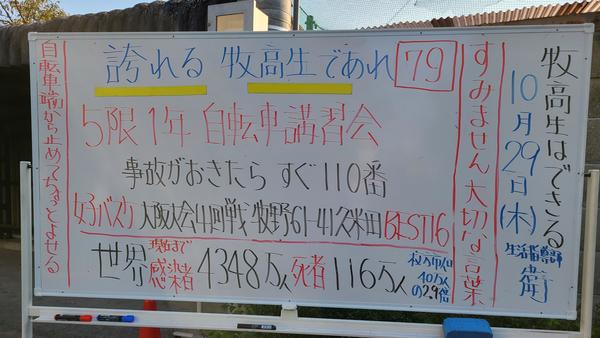 牧高生はできる
10月29日(木)
すみません 大切な言葉
誇れる 牧高生であれ 79
5限1年 自転車講習会
事故がおきたら すぐ110番
女子バスケ 大阪大会4回戦 牧野61-41久米田 BEST16
世界 現在まで 感染者 4348万人 死者 116万人
枚方市人口 40万人 の2.9倍
自転車端から止めてちょっとよせる